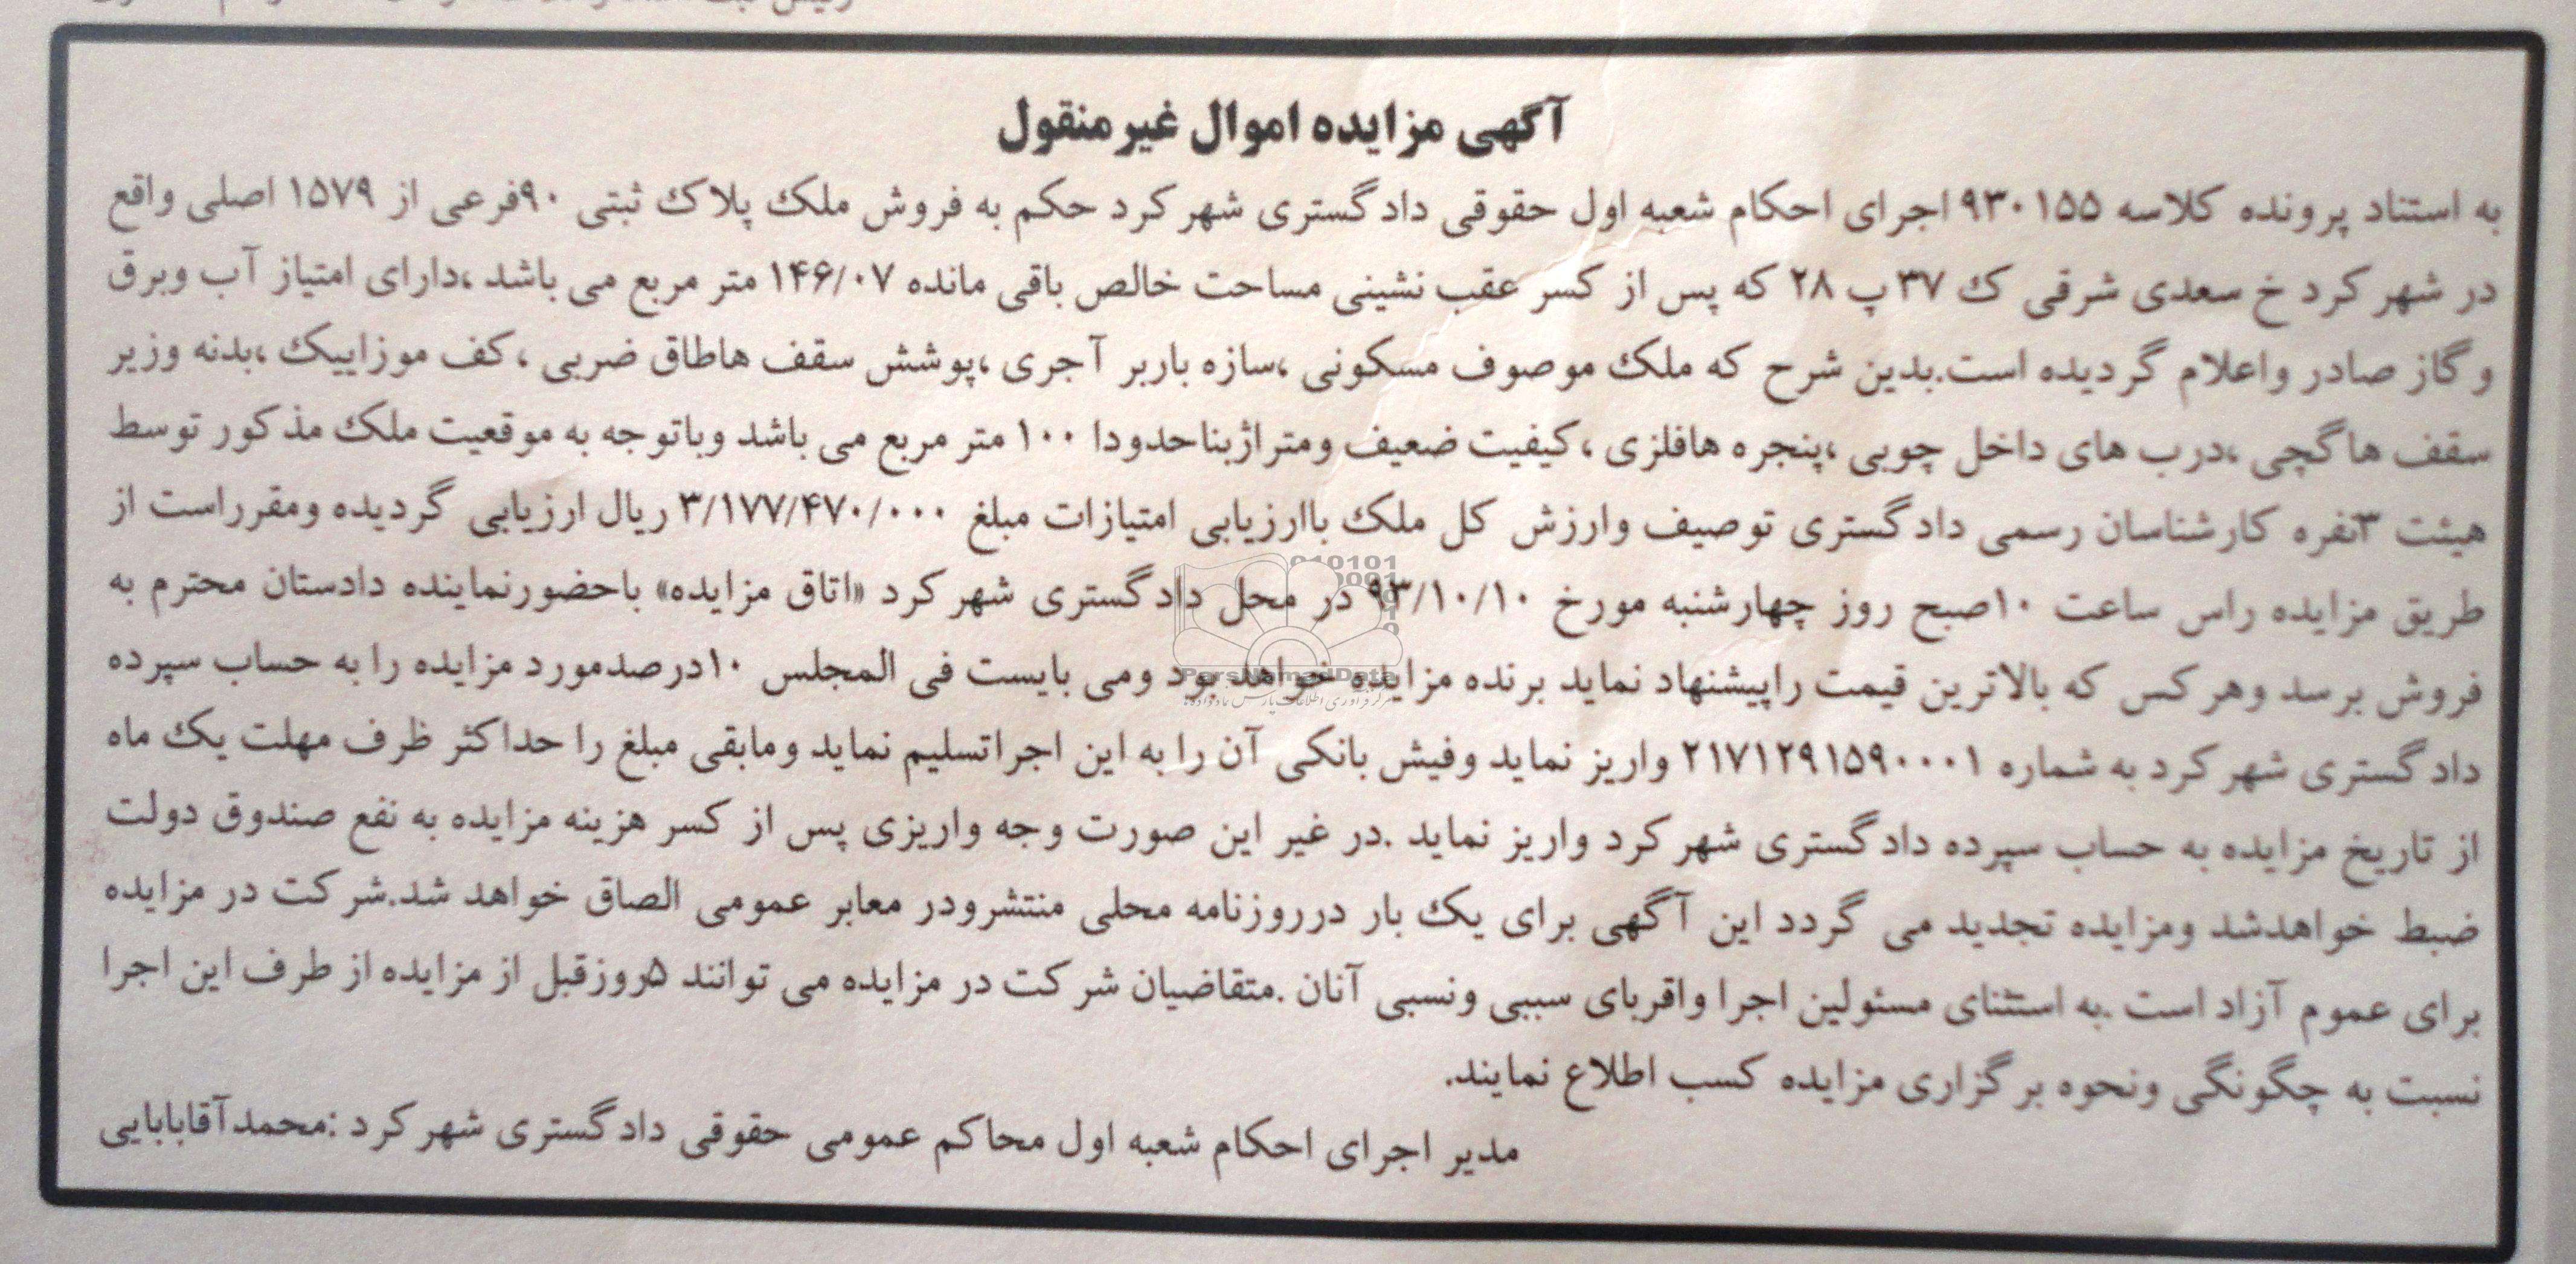 آگهی مزایده اموال غیرمنقول
به استناد پرونده کلاسه ۹۳۰۱۵۵ اجرای احکام شعبه اول حقوقی دادگستری شهرکرد حکم به فروش ملک پلاک ثبتی ۹۰فرعی از ۱۵۷۹ اصلی واقع
در شهرکرد خ سعدی شرقی ک ۳۷ پ ۲۸ که پس از کسر عقب نشینی مساحت خالص باقی مانده ۱۴۶/۰۷ متر مربع می باشد ،دارای امتیاز آب وبرق
وگاز صادر واعلام گردیده است.بدین شرح که ملک موصوف مسکونی ،سازه باربر آجری ،پوشش سقف هاطاق ضربی ،کف موزاییک ،بدنه وزیر
سقف هاگچی ،درب های داخل چوبی ،پنجره هافلزی ،کیفیت ضعیف ومتراژبناحدودا ۱۰۰ متر مربع می باشد وباتوجه به موقعیت ملک مذکور توسط
هیئت ۳نفره کارشناسان رسمی دادگستری توصیف وارزش کل ملک باارزیابی امتیازات مبلغ ۳/۱۷۷/۴۷۰/۰۰۰ ریال ارزیابی گردیده ومقرراست از
طریق مزایده راس ساعت ۱۰صبح روز چهارشنبه مورخ ۹۳/۱۰/۱۰ در محل دادگستری شهرکرد «اتاق مزایده» باحضورنماینده دادستان محترم به
فروش برسد وهرکس که بالاترین قیمت راپیشنهاد نماید برنده مزایده خواهد بود ومی بایست فی المجلس ۱۰درصدمورد مزایده را به حساب سپرده
دادگستری شهرکرد به شماره ۲۱۷۱۲۹۱۵۹۰۰۰۱ واریز نماید وفیش بانکی آن را به این اجراتسلیم نماید ومابقی مبلغ را حداکثر ظرف مهلت یک ماه
از تاریخ مزایده به حساب سپرده دادگستری شهرکرد واریز نماید .در غیر این صورت وجه واریزی پس از کسر هزینه مزایده به نفع صندوق دولت
ضبط خواهدشد ومزایده تجدید می گردد این آگهی برای یک بار درروزنامه محلی منتشرودر معابر عمومی الصاق خواهد شد.شرکت در مزایده
برای عموم آزاد است .به استثنای مسئولین اجرا واقربای سببی ونسبی آنان .متقاضیان شرکت در مزایده می توانند ۵روزقبل از مزایده از طرف این اجرا
نسبت به چگونگی ونحوه برگزاری مزایده کسب اطلاع نمایند.
مدیر اجرای احکام شعبه اول محاکم عمومی حقوقی دادگستری شهرکرد :محمدآقابابایی
ParsNamadData